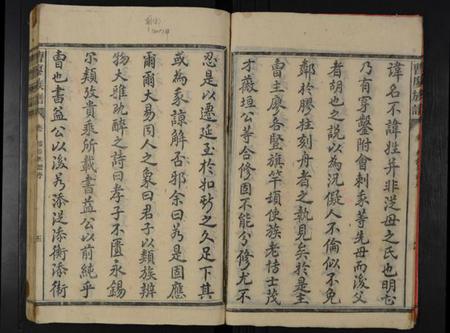 諱名不諱姓幷非從母之氏也明志
乃有穿鑿附會刺豖等先母而後父
者胡也之說以為況儗人不倫似不免
鄰於膠柱刻舟者之執見矣於是主
曹主廖各豎旗竿頌使族老桔士茂
才薇垣公等合修固不能分修尤不
忍是以遷延至於如砂之久足下其
或為豖諒解否邪余曰若是固應
爾爾大易同人之象曰君子以類族辨
物大雅旣醉之詩曰孝子不匱永錫
尔類攷貴乘所載書益公以前純乎
曹也書益公以後若添涇添衛添術